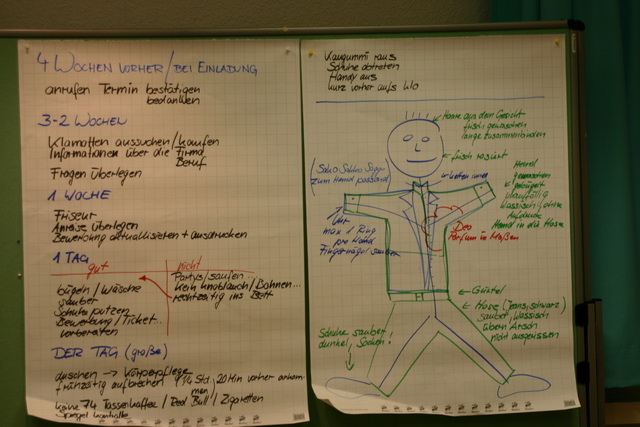 4 WOCHEN VORHER / BEI EINLADUNG
anrufen Termin bestätigen
bedanken
3-2 WOCHEN
Klamotten aussuchen / kaufen
Informationen über die Firma
Beruf
Fragen überlegen
1 WOCHE
Friseur
Anreise überlegen
Bewerbung aktuallisieren + ausdrucken
1 TAG
gut
nicht
Partys/saufen...
bügeln / Wäsche
kein Knoblauch / Bohnen...
sauber
rechtzeitig ins Bett
Schuhe putzen
Bewerbung / Ticket...
vorbereiten
DER TAG (große)
duschen → Körperpflege
frühzeitig aufbrechen
1/4 Std, 20 Min vorher ankom
men
keine 74 Tassen Kaffee / Red Bull / Zigaretten
Spiegel Kontrolle
Kaugummi raus
Schuhe abtreten
Handy aus
kurz vorher aufs Klo
Haare aus dem Gesicht
frisch gewaschen
lange zusammenbinden
frisch rasiert
zum Hemd passend
Hemd
gewaschen
gebügelt
klassisch / ohne
Aufdrucke
Hemd in die Hose
Deo
Parfum in Maßen
1 Uhr
max 1 Ring
pro Hand
Fingernägel sauber
Gürtel
Hose (Jeans, schwarz)
sauber, klassisch
überm Arsch
nicht ausgerissen
Schuhe sauber,
dunkel, Socken!